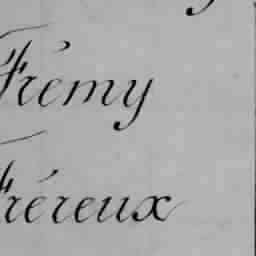 Frémy
Fréreux